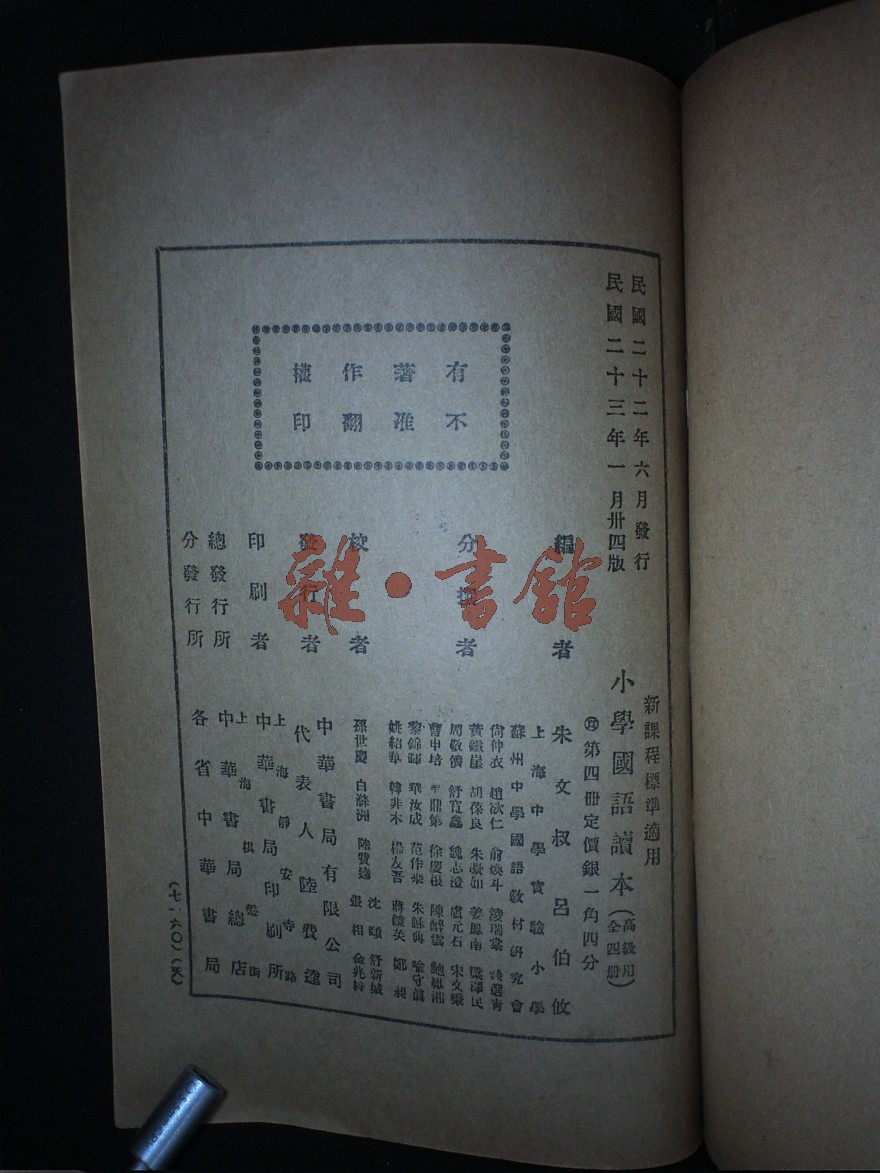 民國二十二年六月發行
民國二十三年一月卅四版
新課程標準適用
小學國語讀本（高級用 全四册）
第四册定價銀一角四分
有著作權
不准翻印
編者
朱文叔 呂伯攸
分撰者
上海中學實驗小學
蘇州中學國語教材研究會
尙仲衣 趙欲仁 俞煥斗
黃鐵崖 胡葆良 朱凝如 姜鳳南
周敬儕 舒寬鑫 魏志澄 盧元石 宋文藻
曹中培 鼎第 徐慶根 陳醉雲
黎錦暉 華汝成 范作乘 朱穌典 喻守眞
姚紹華 韓非木 楊友吾 蔣鏡芙 鄭昶
校者
孫世慶 白滌洲 陸費逵 沈頤 舒新城
張相 金兆梓
發行者
中華書局有限公司
代表人陸費逵
印刷者
上海靜安寺路
中華書局印刷所
總發行所
上海棋盤街
中華書局總店
分發行所
各省中華書局
雜·書館